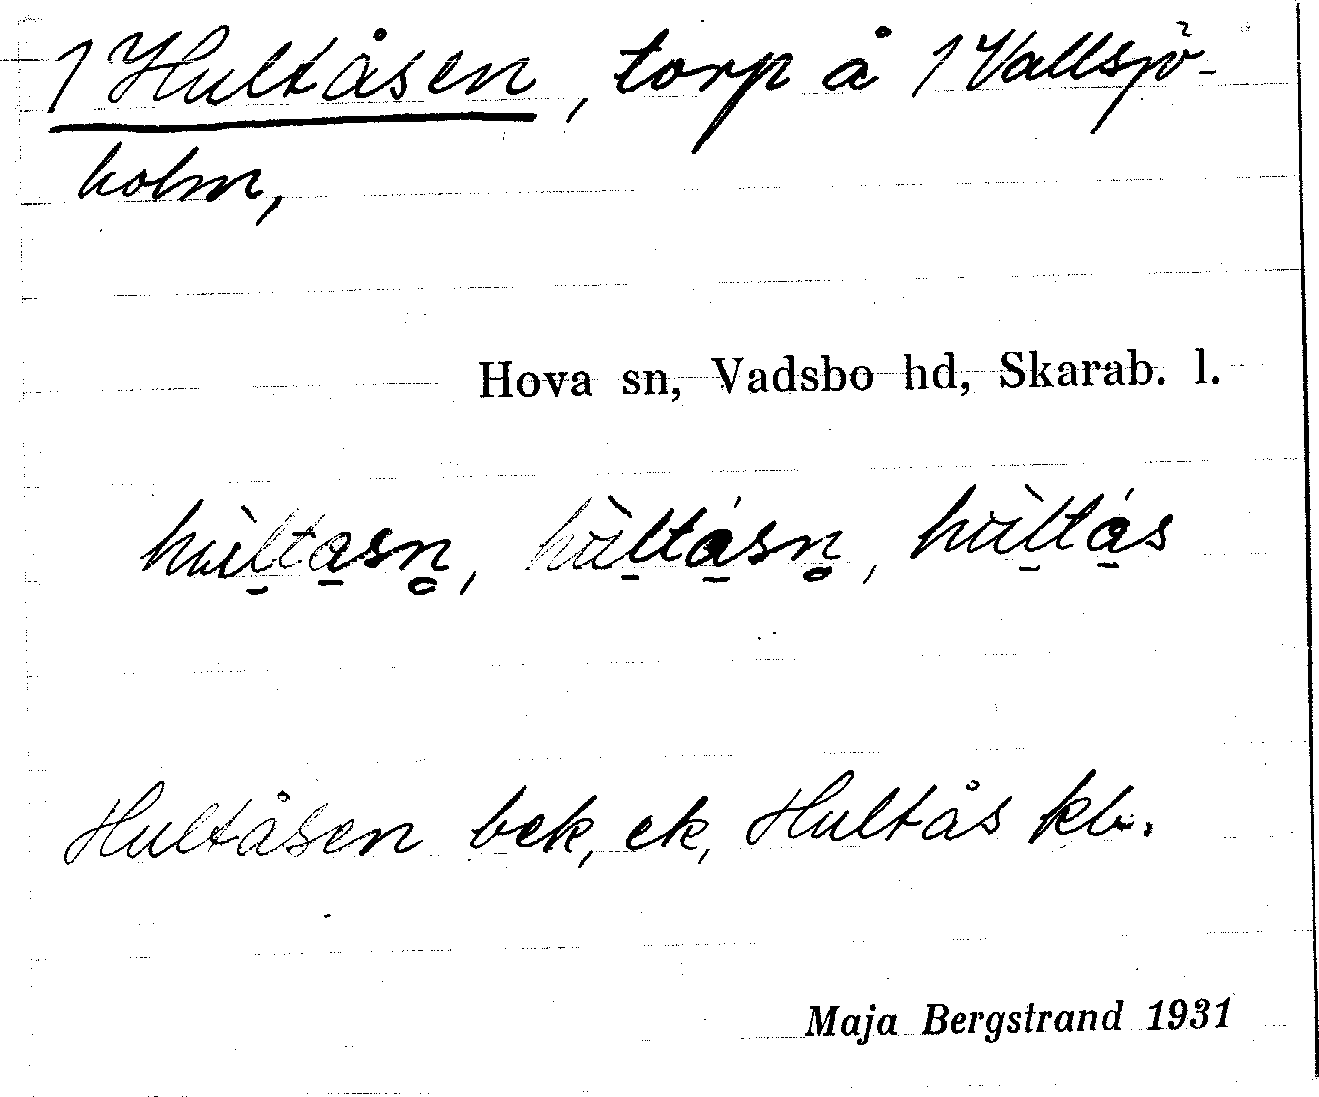 1 Hultåsen, torp å 1 Vallsjö-
holm,
Hova sn, Vadsbo hd, Skarab. l.
hùlta̲sn̥, hùltá̲sn̥, hùltá̲s
Hultåsen bek, ek, Hultås kb.
Maja Bergstrand 1931